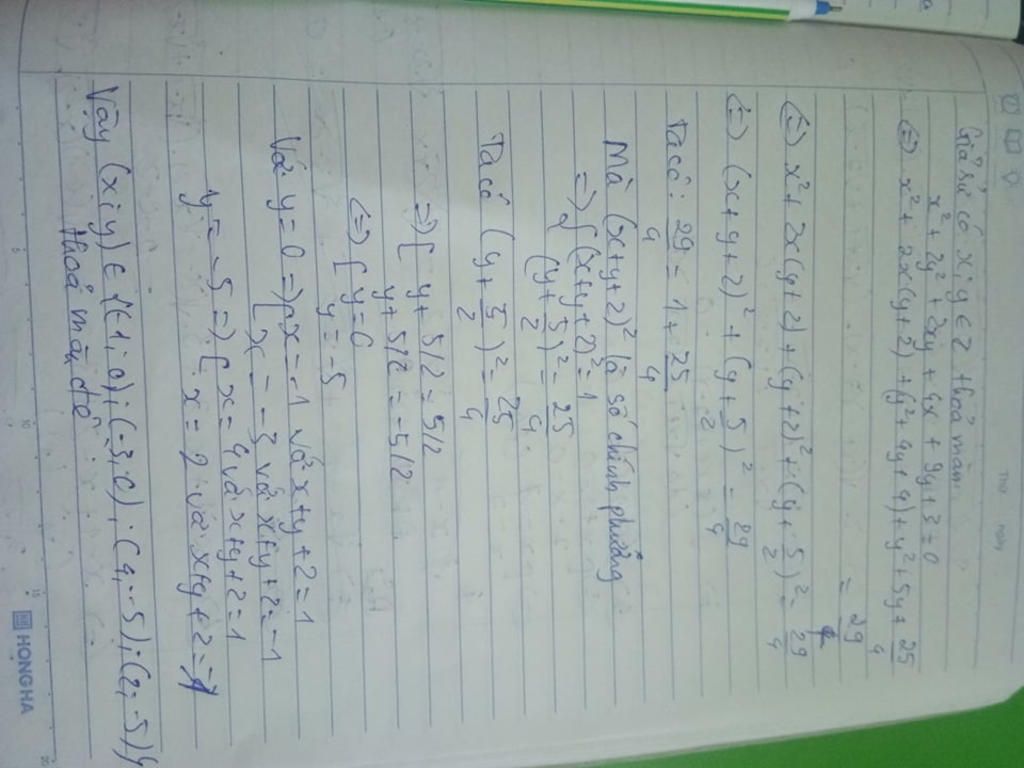 Thứ
Ngày
Giả sử có x; y ∈ Z thoả mãn
x² + 2y² + 2xy + 4x + 9y + 3 = 0
(=) x² + 2x(y+2) + (y² + 4y + 4) + y² + 5y + 25/4
= 29/4
(=) x² + 2x(y+2) + (y+2)² + (y + 5/2)² = 29/4
(=) (x+y+2)² + (y + 5/2)² = 29/4
Ta có: 29/4 = 1 + 25/4
Mà (x+y+2)² là số chính phương
=) { (x+y+2)² = 1
(y + 5/2)² = 25/4
Ta có (y + 5/2)² = 25/4
=) [ y + 5/2 = 5/2
y + 5/2 = -5/2
(=) [ y = 0
y = -5
Và y = 0 =) [ x = -1 và x+y+2 = 1
x = -3 và x+y+2 = -1
y = -5 =) [ x = 4 và x+y+2 = 1
x = 2 và x+y+2 = -1
Vậy (x; y) ∈ {(-1; 0); (-3; 0); (4; -5); (2; -5)}
thoả mãn đề
HONG HA